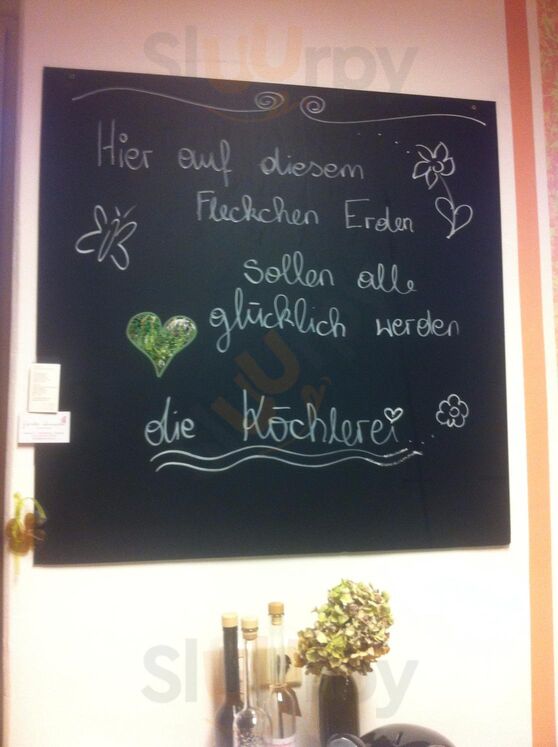 Slurpy
Hier auf diesem
Fleckchen Erden
sollen alle
glücklich werden
die Köchlerei
Slurpy